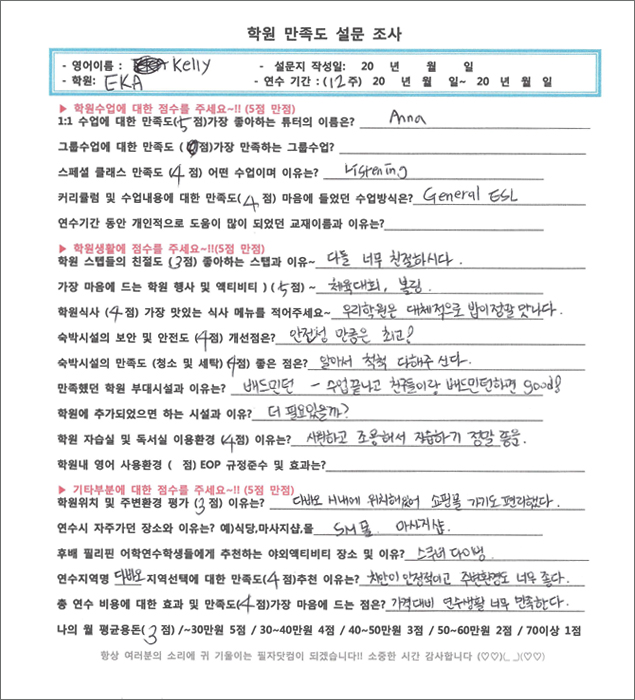 학원 만족도 설문 조사
- 영어이름 : Kelly - 설문지 작성일: 20 년 월 일
- 학원: EKA - 연수 기간 : (12주) 20 년 월 일~ 20 년 월 일
▶ 학원수업에 대한 점수를 주세요~!! (5점 만점)
1:1 수업에 대한 만족도(5점)가장 좋아하는 튜터의 이름은? Anna
그룹수업에 대한 만족도 ( 점)가장 만족하는 그룹수업?
스페셜 클래스 만족도 (4 점) 어떤 수업이며 이유는? Listening
커리큘럼 및 수업내용에 대한 만족도(4 점) 마음에 들었던 수업방식은? General ESL
연수기간 동안 개인적으로 도움이 많이 되었던 교재이름과 이유는?
▶ 학원생활에 점수를 주세요~!!(5점 만점)
학원 스텝들의 친절도 (3점) 좋아하는 스탭과 이유~ 다들 너무 친절하시다.
가장 마음에 드는 학원 행사 및 액티비티 ) (5점) ~ 체육대회, 볼링.
학원식사 (4점) 가장 맛있는 식사 메뉴를 적어주세요~ 우리학원은 대체적으로 밥이정말 맛나다.
숙박시설의 보안 및 안전도 (4점) 개선점은? 안전성 만큼은 최고!
숙박시설의 만족도 (청소 및 세탁) (4점) 좋은 점은? 알아서 척척 다해주신다.
만족했던 학원 부대시설과 이유는? 배드민턴 - 수업끝나고 친구들이랑 배드민턴하면 good!
학원에 추가되었으면 하는 시설과 이유? 더 필요있을까?
학원 자습실 및 독서실 이용환경 (4점) 이유는? 시원하고 조용해서 자습하기 정말 좋음.
학원내 영어 사용환경 ( 점) EOP 규정준수 및 효과는?
▶ 기타부분에 대한 점수를 주세요~!! (5점 만점)
학원위치 및 주변환경 평가 (3 점) 이유는? 다바오 시내에 위치해있어 쇼핑몰 가기도 편리했다.
연수시 자주가던 장소와 이유는? 예)식당,마사지샵,몰 SM몰. 마사지샵.
후배 필리핀 어학연수학생들에게 추천하는 야외액티비티 장소 및 이유? 스쿠버 다이빙.
연수지역명 다바오 지역선택에 대한 만족도(4점)추천 이유는? 치안이 안정적이고 주변환경도 너무 좋다.
총 연수 비용에 대한 효과 및 만족도(4점)가장 마음에 드는 점은? 가격대비 연수생활 너무 만족한다.
나의 월 평균용돈(3점) /~30만원 5점 / 30~40만원 4점 / 40~50만원 3점 / 50~60만원 2점 / 70이상 1점
항상 여러분의 소리에 귀 기울이는 필자닷컴이 되겠습니다!! 소중한 시간 감사합니다 (♡♡)(_ _)(♡♡)